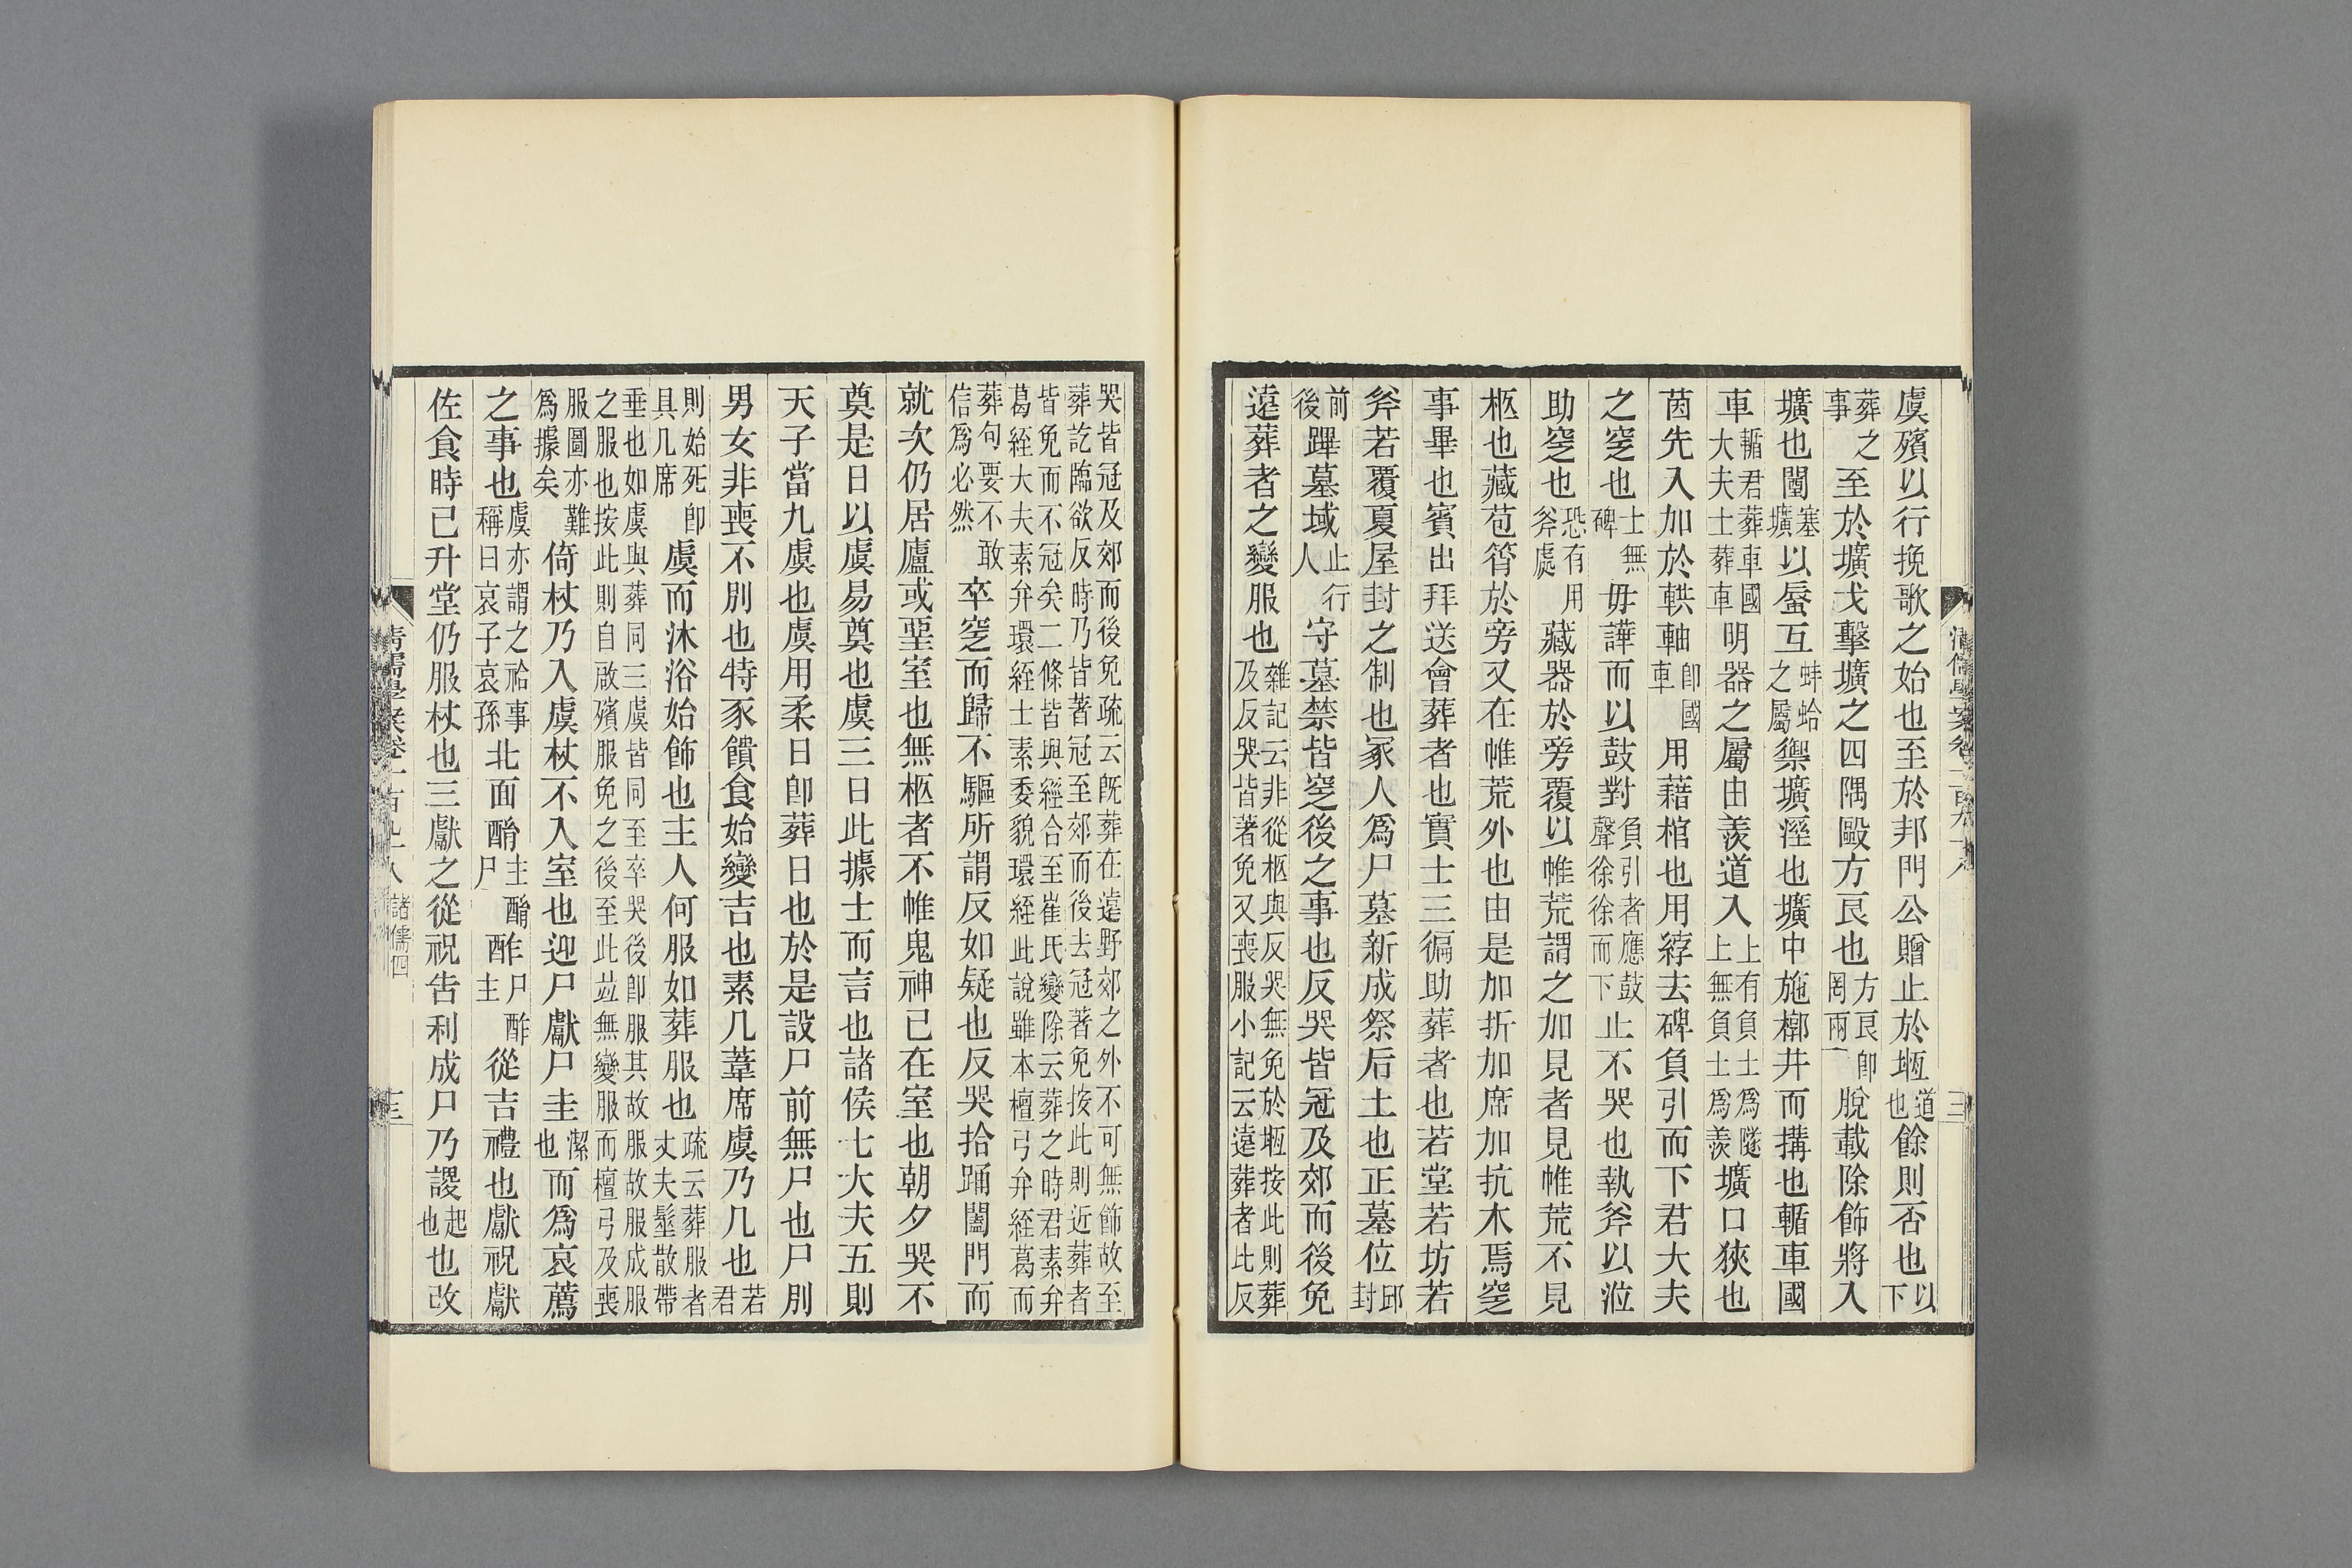 虞殯以行挽歌之始也至於邦門公贈止於堩道也餘則否也以下
葬之事至於壙戈擊壙之四隅毆方良也方良卽罔兩脫載除飾將入
壙也闉塞壙以蜃互蚌蛤之屬禦壙溼也壙中施槨井而搆也輴車國
車輴君葬車國大夫士葬車明器之屬由羨道入上有負土爲隧上無負土爲羨壙口狹也
茵先入加於輁軸卽國車用藉棺也用綍去碑負引而下君大夫
之窆也士無碑毋譁而以鼓對負引者應鼓聲徐徐而下止不哭也執斧以涖
助窆也恐有用斧處藏器於旁覆以帷荒謂之加見者見帷荒不見
柩也藏苞筲於旁又在帷荒外也由是加折加席加抗木焉窆
事畢也賓出拜送會葬者也實土三徧助葬者也若堂若坊若
斧若覆夏屋封之制也冢人爲尸墓新成祭后土也正墓位邱封
前後蹕墓域止行人守墓禁皆窆後之事也反哭皆冠及郊而後免
遠葬者之變服也雜記云非從柩與反哭無免於堩按此則葬及反哭皆著免又喪服小記云遠葬者比反
哭皆冠及郊而後免疏云旣葬在遠野郊之外不可無飾故至葬訖臨欲反時乃皆著冠至郊而後去冠著免按此則近葬者
皆免而不冠矣二條皆與經合至崔氏變除云葬之時君素弁葛絰大夫素弁環絰士素委貌環絰此說雖本檀弓弁絰葛而
葬句要不敢信爲必然卒窆而歸不驅所謂反如疑也反哭拾踊闔門而
就次仍居廬或堊室也無柩者不帷鬼神已在室也朝夕哭不
奠是日以虞易奠也虞三日此據士而言也諸侯七大夫五則
天子當九虞也虞用柔日卽葬日也於是設尸前無尸也尸別
男女非喪不別也特豕饋食始變吉也素几葦席虞乃几也若君
則始死卽具几席虞而沐浴始飾也主人何服如葬服也疏云葬服者丈夫髽散帶
垂也如虞與葬同三虞皆同至卒哭後卽服其故服故服成服之服也按此則自啟殯服免之後至此竝無變服而檀弓及喪
服圖亦難爲據矣倚杖乃入虞杖不入室也迎尸獻尸圭潔也而爲哀薦
之事也虞亦謂之祫事稱曰哀子哀孫北面酳主酳尸酢尸酢主從吉禮也獻祝獻
佐食時已升堂仍服杖也三獻之從祝告利成尸乃謖起也也改
諸儒四